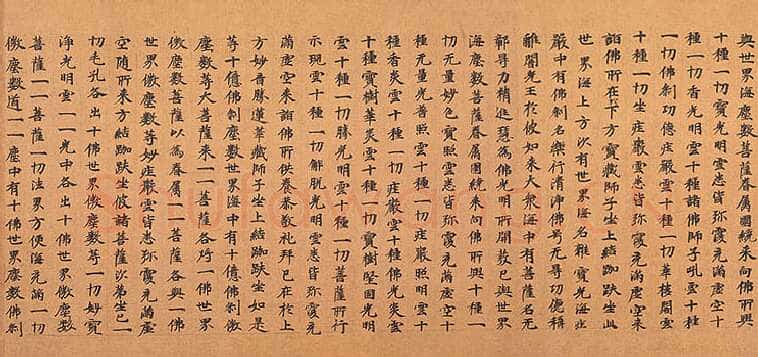 與世界海塵數菩薩眷屬圍繞來向佛所與
十種一切寶光明雲悉皆弥覆充滿虛空十
種一切香光明雲十種諸佛師子吼雲十種
一切佛刹功德莊嚴雲十種一切華樓閣雲
十種一切坐莊嚴雲悉皆弥覆充滿虛空來
詣佛所在下方寶藏師子坐上結跏趺坐此
世界海上方次有世界海名雜寶光海莊
嚴中有佛刹名樂行清淨佛号无㝵功德稱
離闇光王於彼如來大衆海中有菩薩名无
郭尋力精進慧為佛光明所開發已與世界
海塵數菩薩眷屬圍繞來向佛所與十種一
切无量妙色寶照雲悉皆弥覆充滿虛空十
種无量光普照雲十種一切莊嚴照明雲十
種香炎雲十種一切莊嚴雲十種佛光炎雲
十種寶樹華炎雲十種一切寶樹堅固光明
雲十種一切勝光明雲十種一切菩薩所行
示現雲十種一切解脫光明雲悉皆弥覆充
滿虛空來詣佛所供養恭敬礼拜已在於上
方妙音勝蓮華藏師子坐上結跏趺坐如是
等十億佛刹塵數世界海中有十億佛刹微
塵數等大菩薩來一一菩薩各將一佛世界
微塵數菩薩以為眷屬一一菩薩各與一佛
世界微塵數等妙莊嚴雲皆悉弥覆充滿虛
空随所來方結跏趺坐彼諸菩薩次第坐已一
切毛孔各出十佛世界微塵數等一切妙寶
淨光明雲一一光中各出十佛世界微塵數
菩薩一一菩薩一切法界方便海充滿一切
微塵數道一一塵中有十佛世界塵數佛刹